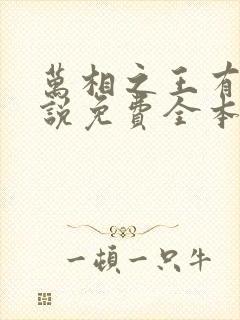 萬相之王有
説免費全本
一頓一只牛